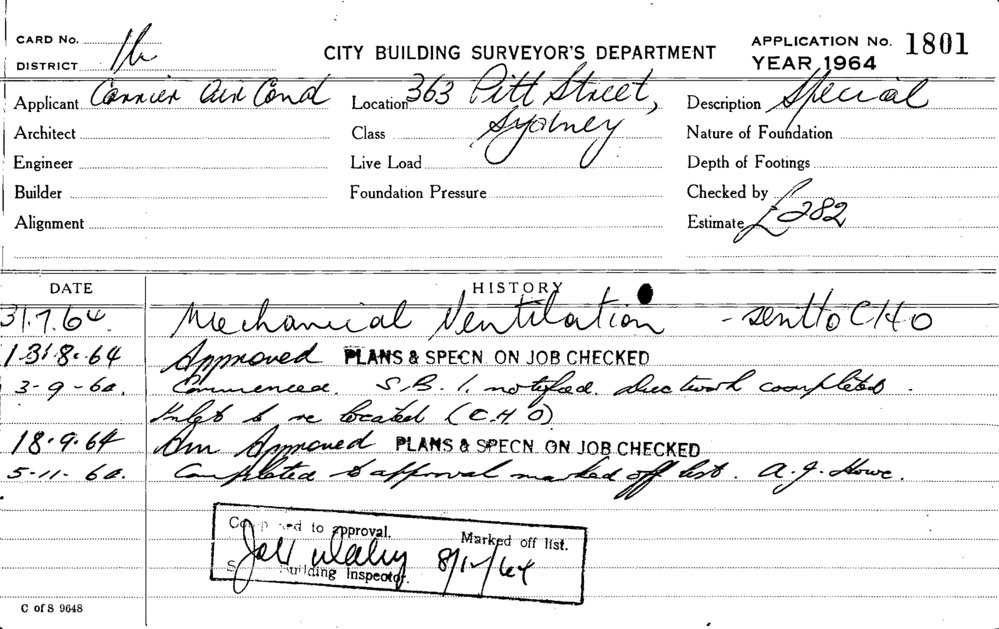 CARD No.
DISTRICT
CITY BUILDING SURVEYOR'S DEPARTMENT
APPLICATION No. 1801
YEAR 1964
Applicant Carrier Air Cond
Location 363 Pitt Street,
Description Special
Architect
Class Sydney
Nature of Foundation
Engineer
Live Load
Depth of Footings
Builder
Foundation Pressure
Checked by
Alignment
Estimate £282
DATE
HISTORY
31.7.64 Mechanical Ventilation - sent to CHO
31.8.64 Approved PLANS & SPECN. ON JOB CHECKED
3-9-64. Commenced. S.B.I. notified. ductwork completed.
Inlet to re located (C.H.O)
18.9.64 Am Approved PLANS & SPECN. ON JOB CHECKED
5-11-64. Completed to approval marked off list. A.J. Howe.
to approval. Marked off list.
Building Inspector.
C of S 9648